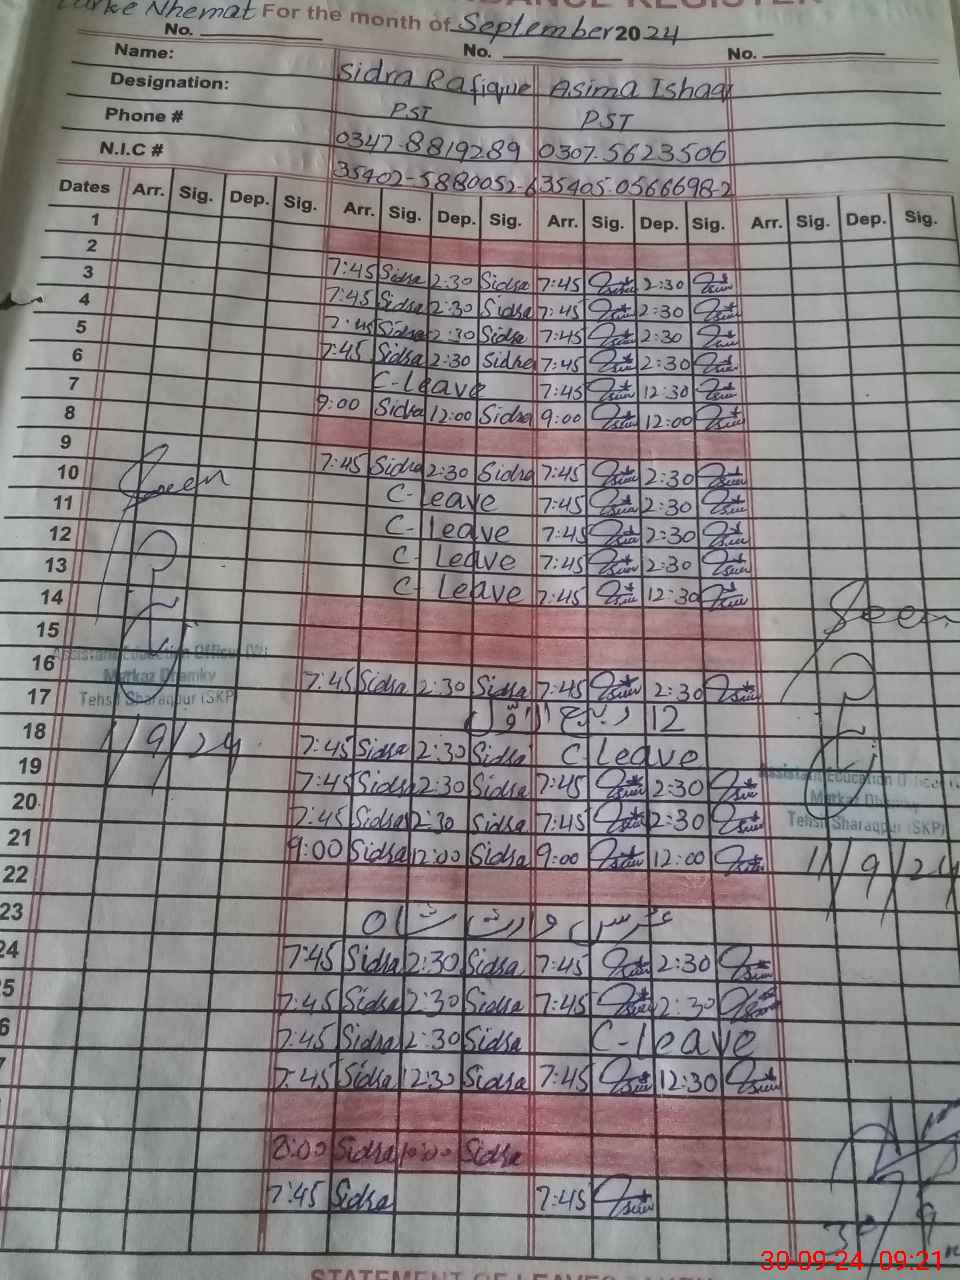 For the month of September 2024
No. No. No.
Name: Sidra Rafique Asima Ishaq
Designation: PST PST
Phone # 0347-8819289 0307-5623506
N.I.C # 35402-5880052-6 35405-0566698-2
Dates Arr. Sig. Dep. Sig. Arr. Sig. Dep. Sig. Arr. Sig. Dep. Sig. Arr. Sig. Dep. Sig.
1
2
3 7:45 Sidra 2:30 Sidra 7:45 2:30
4 7:45 Sidra 2:30 Sidra 7:45 2:30
5 7:45 Sidra 2:30 Sidra 7:45 2:30
6 7:45 Sidra 2:30 Sidra 7:45 2:30
7 C-Leave 7:45 12:30
8 9:00 Sidra 12:00 Sidra 9:00 12:00
9
10 7:45 Sidra 2:30 Sidra 7:45 2:30
11 C-Leave 7:45 2:30
12 C-Leave 7:45 2:30
13 C-Leave 7:45 2:30
14 C-Leave 7:45 12:30
15
16
17 7:45 Sidra 2:30 Sidra 7:45 2:30
12 ربیع الاوّل
18 7:45 Sidra 2:30 Sidra C-Leave
19 7:45 Sidra 2:30 Sidra 7:45 2:30
20 7:45 Sidra 2:30 Sidra 7:45 2:30
21 9:00 Sidra 12:00 Sidra 9:00 12:00
22
23 عرس وارث شاہ
24 7:45 Sidra 2:30 Sidra 7:45 2:30
25 7:45 Sidra 2:30 Sidra 7:45 2:30
6 7:45 Sidra 2:30 Sidra C-leave
7 7:45 Sidra 12:30 Sidra 7:45 12:30
8:00 Sidra 10:00 Sidra
7:45 Sidra 7:45
Seen
Assistant Education Officer
Markaz Dhamky
Tehsil Sharaqpur (SKP)
11/9/24
Seen
Assistant Education Officer
Markaz Dhamky
Tehsil Sharaqpur (SKP)
11/9/24
30/9
30-09-24 09:21